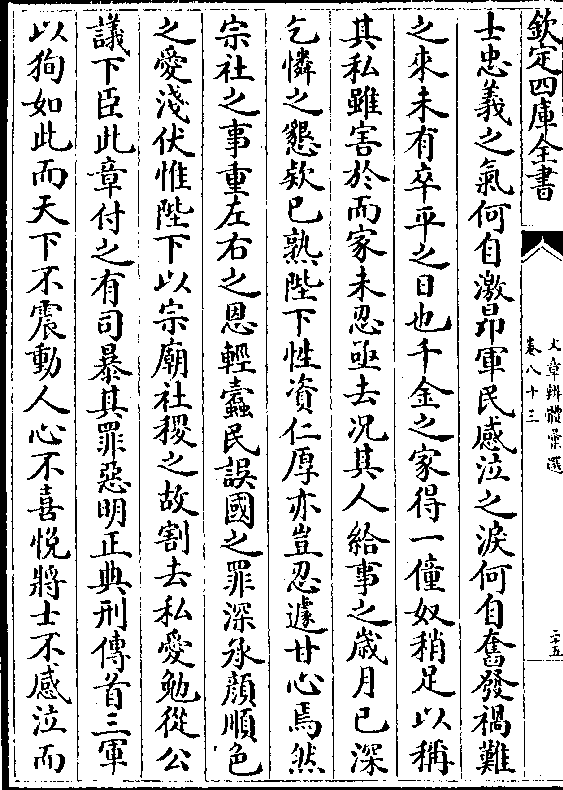 欽定四庫全書
文章辨體彚選
卷八十三
二十五
士忠義之氣何自激昂軍民感泣之淚何自奮發禍難
之來未有卒平之日也千金之家得一僮奴稍足以稱
其私雖害於而家未忍亟去况其人給事之歲月已深
乞憐之懇欵已熟陛下性資仁厚亦豈忍遽甘心焉然
宗社之事重左右之恩輕蠧民誤國之罪深承顔順色
之愛淺伏惟陛下以宗廟社稷之故割去私愛勉從公
議下臣此章付之有司暴其罪惡明正典刑傳首三軍
以狥如此而天下不震動人心不喜悅將士不感泣而